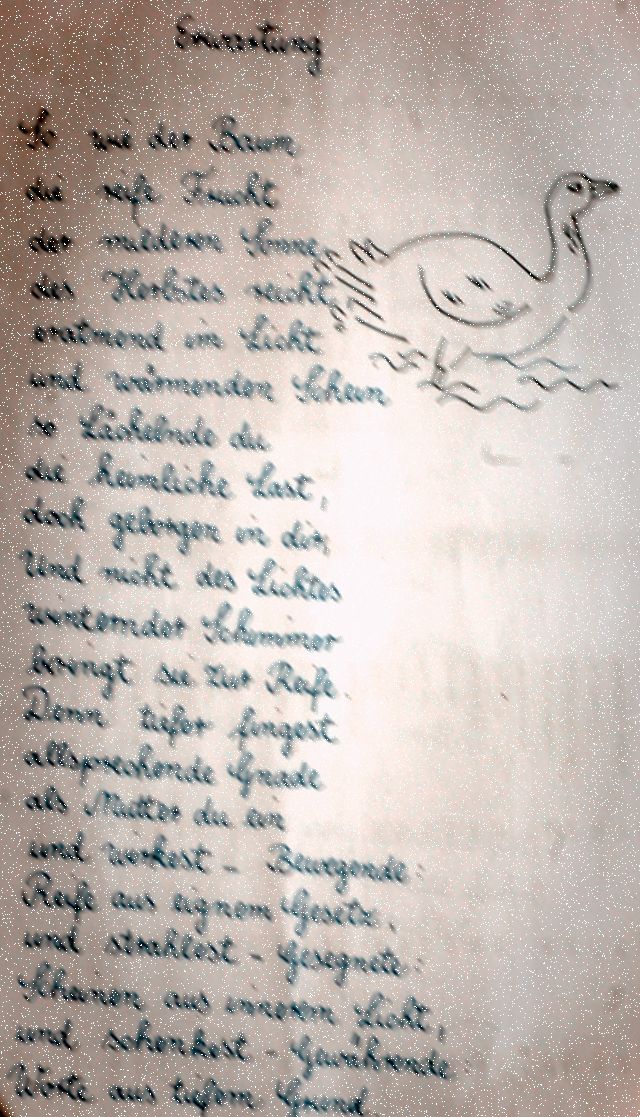 Erwartung
So wie der Baum
die reife Frucht
der milderen Sonne
des Herbstes reicht,
eratmend im Licht
und wärmenden Schein
so Lächelnde du
die heimliche Last,
doch geborgen in dir,
Und nicht des Lichtes
winternder Schimmer
bringt sie zur Reife.
Denn tiefer fingest
allsprechende Gnade
als Mutter du ein
und wirkest - Bewegende:
Reife aus eignem Gesetz,
und strahlest - Gesegnete:
Scheinen aus innerem Licht,
und schenkest - Gewährende:
Worte aus tiefem Grund